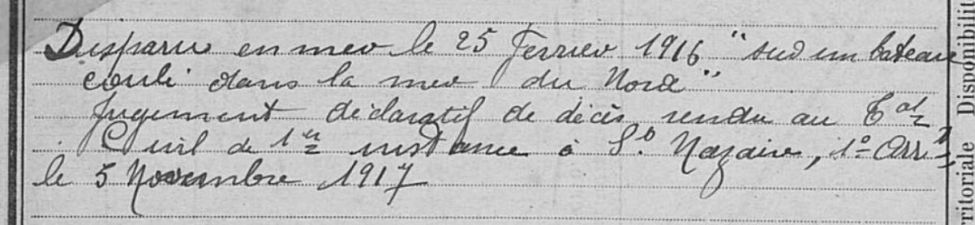 Disparu en mer le 25 Fevrier 1916 " sud un bateau
coulé dans la mer du Nord "
Jugement déclaratif de décès rendu au Tal
Civil de 1re instance à St Nazaire, 1o Arrt,
le 5 Novembre 1917
rritoriale Disponibilit